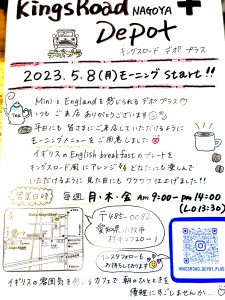 KingsRoad NAGOYA
Depot
キングスロード デポ プラス
2023.5.8(月)モーニング start!!
MiniとEnglandを感じられるデポプラス
いつも ご来店 ありがとうございます
平日にも 皆さまにご来店していただけるように
モーニングメニューを ご用意しました
イギリスの English breakfastのプレートを
キングスロード風にアレンジ どなたにも楽しんで
いただけるように 見た目にも ワクワク仕上げました!!
営業日時 毎週 月・木・金 Am 9:00-pm 14:00
(LO 13:30)
〒485-0082
愛知県小牧市
村中1720-1
インスタフォローも
お待ちしております
KINGSROAD.DEPOT.PLUS
イギリスの雰囲気を感じるカフェで 朝のひとときを
優雅にすごしませんか…